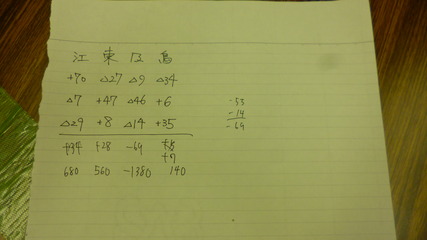 江 東 及 島
+70 △27 △9 △34
△7 +47 △46 +6
△29 +8 △14 +35
+34 +28 -69
+7
680 560 -1380 140
-55
-14
-69